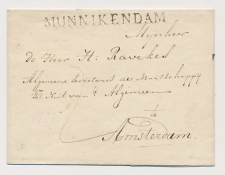 MUNNIKENDAM
Mynheer
de Heer H: Ravekes
Algemeene Secretaris der Maatschappy
tot Nut van 't Algemeen
te
Amsterdam.